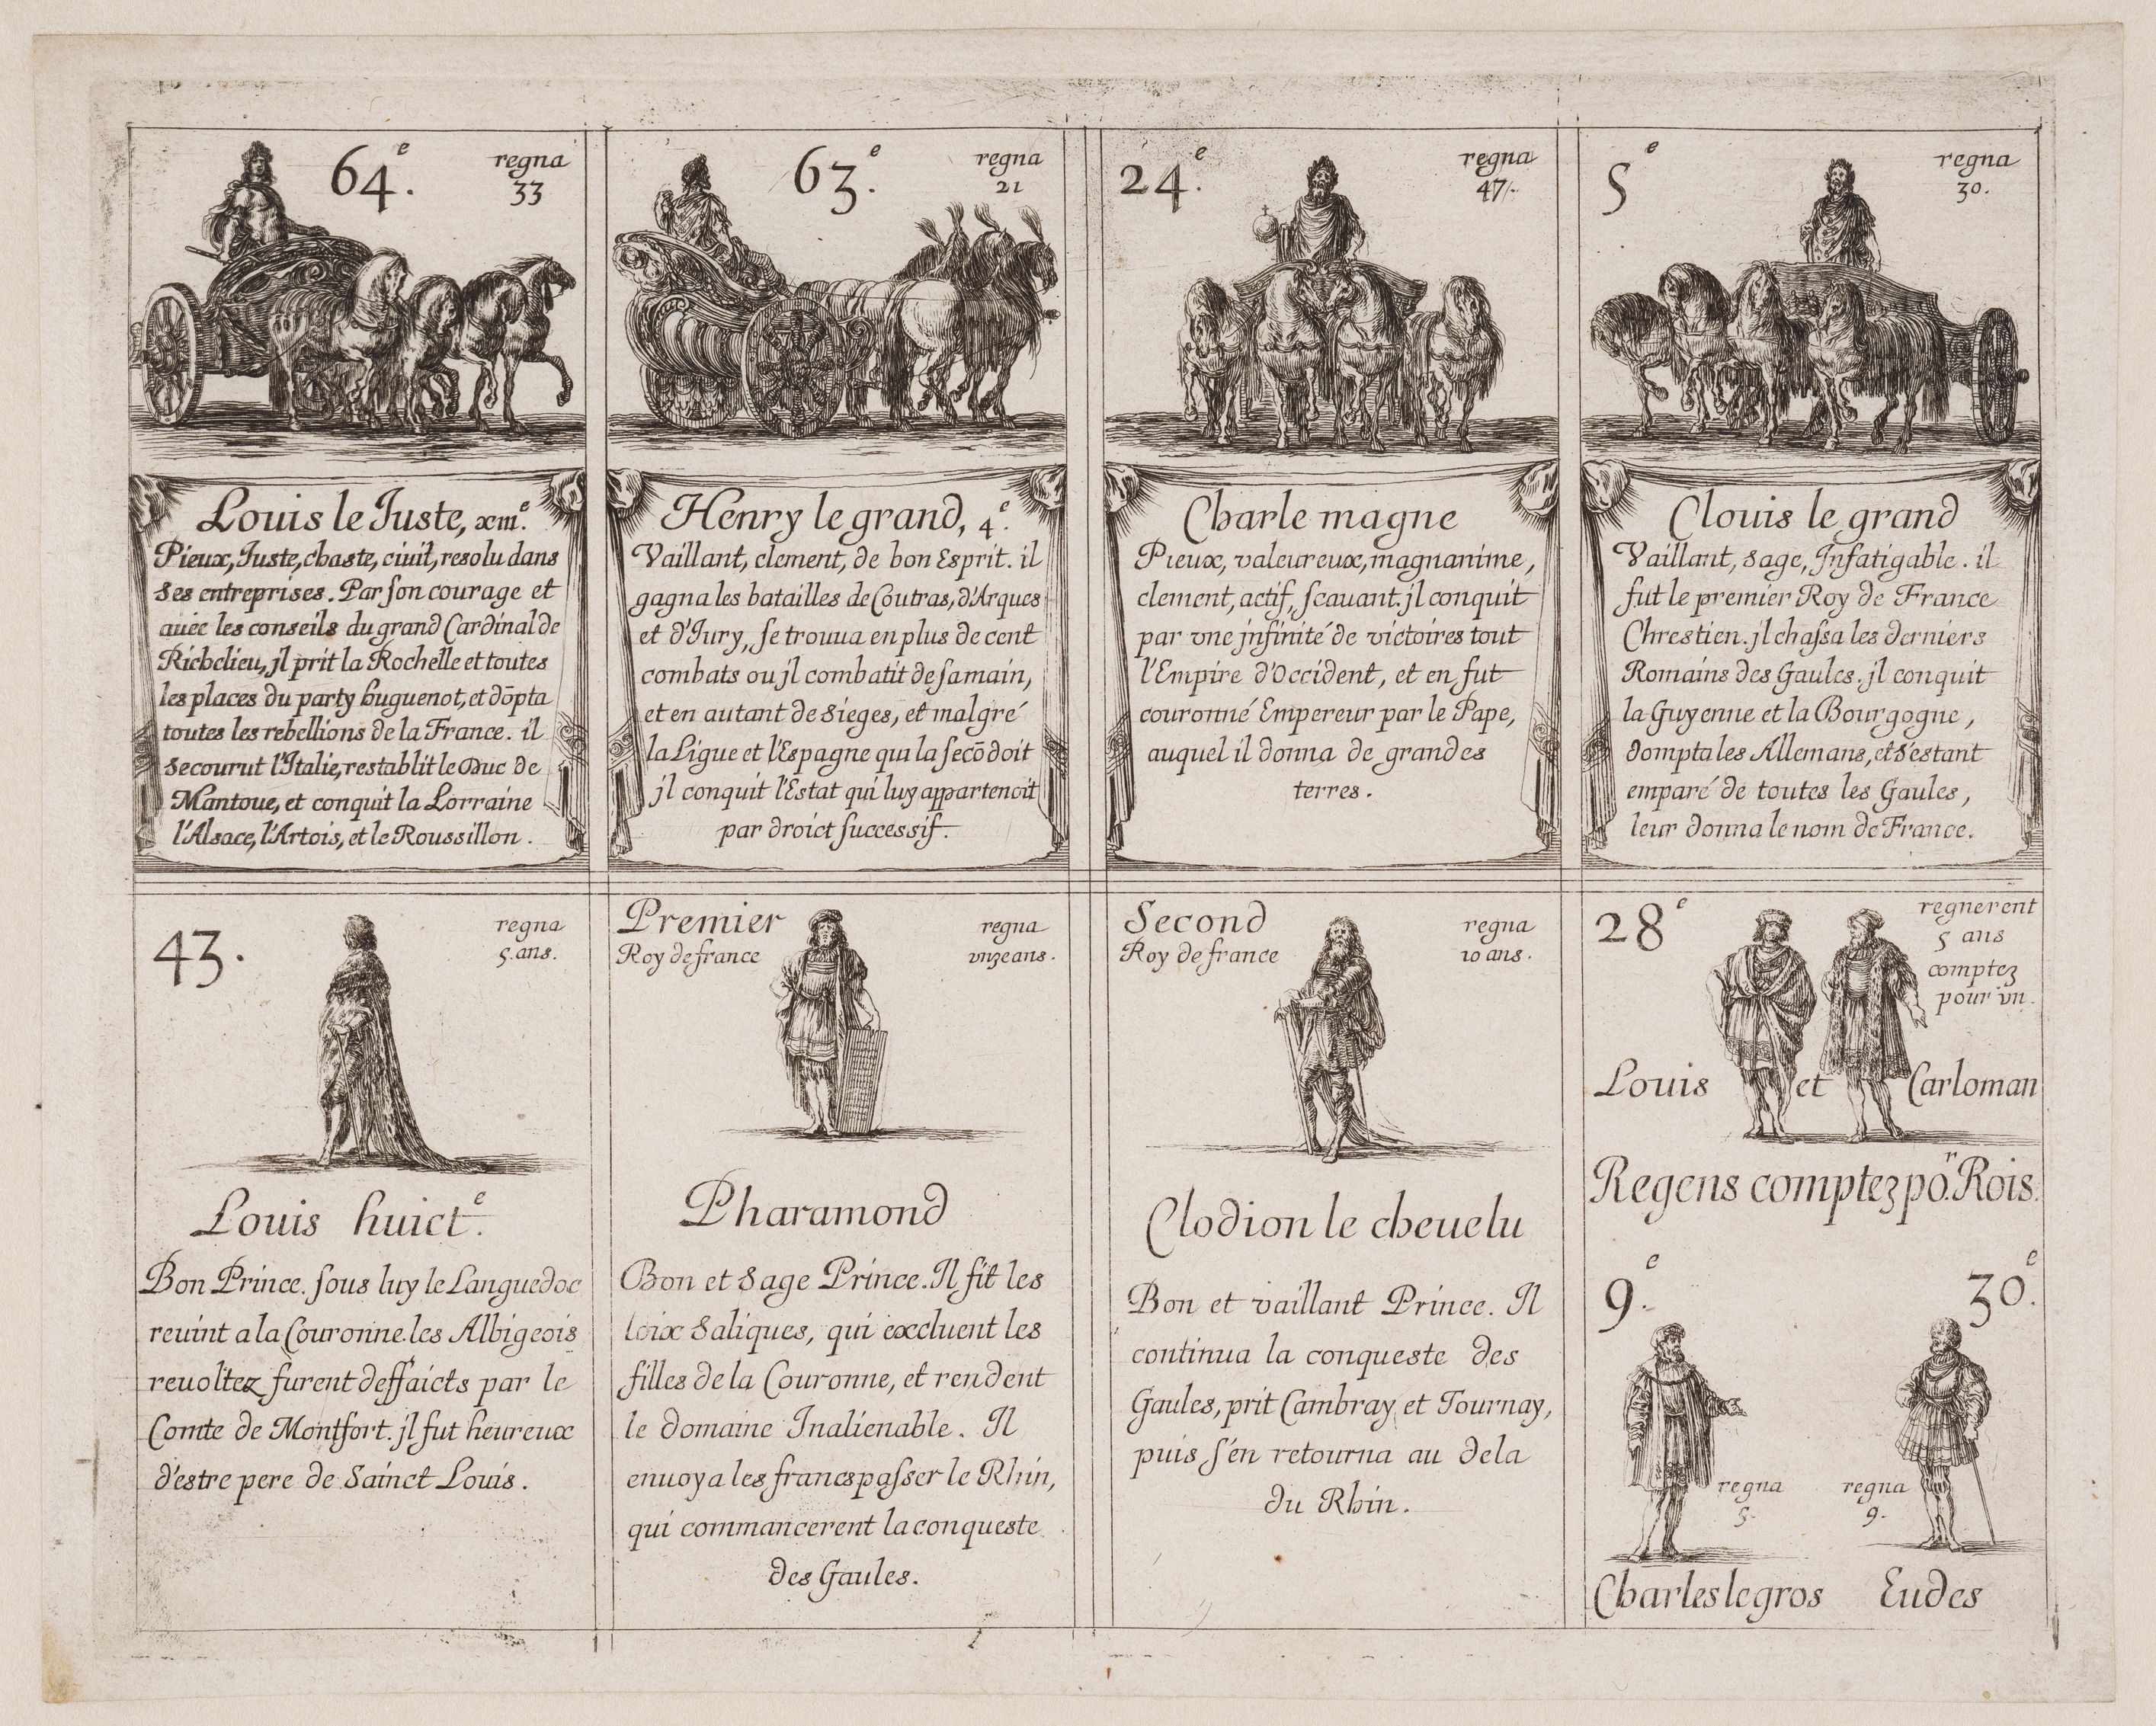 64.e
regna
33
Louis le Juste, xiii.e
Pieux, Juste, chaste, ciuil, resolu dans
ses entreprises. Par son courage et
auec les conseils du grand Cardinal de
Richelieu, jl prit la Rochelle et toutes
les places du party huguenot, et dōpta
toutes les rebellions de la France. il
secourut l'Italie, restablit le Duc de
Mantoue, et conquit la Lorraine
l'Alsace, l'Artois, et le Roussillon.
63.e
regna
21
Henry le grand, 4.e
Vaillant, clement, de bon Esprit. il
gagna les batailles de Coutras, d'Arques
et d'Iury, se trouua en plus de cent
combats ou jl combatit de sa main,
et en autant de sieges, et malgré
la Ligue et l'Espagne qui la secōdoit
jl conquit l'Estat qui luy appartenoit
par droict successif.
24.e
regna
47.
Charle magne
Pieux, valeureux, magnanime,
clement, actif, scauant. jl conquit
par vne jnfinité de victoires tout
l'Empire d'Occident, et en fut
couronné Empereur par le Pape,
auquel il donna de grandes
terres.
5e
regna
30.
Clouis le grand
Vaillant, sage, Infatigable. il
fut le premier Roy de France
Chrestien. jl chassa les derniers
Romains des Gaules. jl conquit
la Guyenne et la Bourgogne,
dompta les Allemans, et s'estant
emparé de toutes les Gaules,
leur donna le nom de France.
43.
regna
5. ans.
Louis huict.e
Bon Prince. sous luy le Languedoc
reuint a la Couronne. les Albigeois
reuoltez furent deffaicts par le
Comte de Montfort. jl fut heureux
d'estre pere de Sainct Louis.
Premier
Roy de france
regna
vnze ans.
Pharamond
Bon et sage Prince. Il fit les
loix saliques, qui excluent les
filles de la Couronne, et rendent
le domaine Inalienable. Il
enuoya les francs passer le Rhin,
qui commancerent la conqueste
des Gaules.
Second
Roy de france
regna
10 ans.
Clodion le cheuelu
Bon et vaillant Prince. Il
continua la conqueste des
Gaules, prit Cambray et Tournay,
puis s'en retourna au dela
du Rhin.
28e
regnerent
5 ans
comptez
pour vn.
Louis et Carloman
Regens comptez po.r Rois.
9.e
30.e
regna
5.
regna
9.
Charles le gros
Eudes